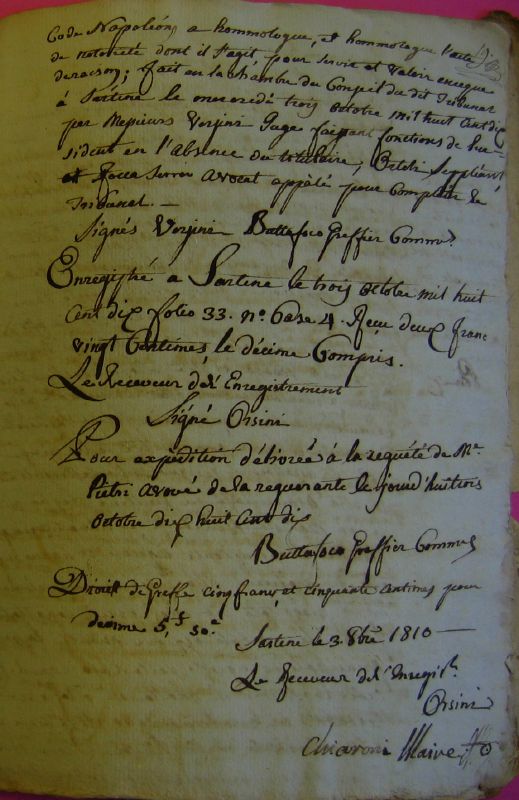 Code Napoléon, a hommologue, et hommologue l'acte
de notorieté dont il s'agit pour servir et valoir ce que
de raison; fait en la chambre du Conseil du dit Tribunal
à Sartene le mercredi trois octobre mil huit cent dix
par Messieurs Vorjini Juge faisant fonctions de Pre-
sident en l'absence du titulaire,
et Rocca Serra avocat appélé pour completer le
Tribunal. —
Signés Vorjini Buttafoco Greffier Comms
Enregistré a Sartene le trois octobre mil huit
cent dix folio 33. n.o Case 4. Reçu deux franc
vingt Centimes, le décime Compris.
Le Receveur de l'Enregistrement
Signé Orsini
Pour expédition délivreé à la requéte de Me.
Pietri avoué de la requerante le jourd'hui trois
octobre dix huit cent dix
Buttafoco Greffier Comms
Droit de Greffe cinq francs et cinquante centimes pour
decime 5f 50c
Sartene le 3. 8bre 1810 —
Le Receveur de l'enregist.
Orsini
Chiaroni Maire